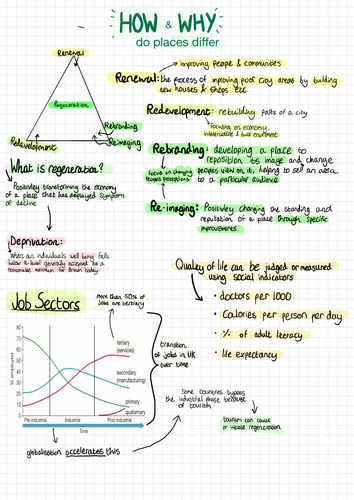 HOW & WHY
do places differ
Renewal
Regeneration
Rebranding
Redevelopment
Re-imaging
improving people & communities
Renewal: the process of improving poor city areas by building
new houses & shops etc
Redevelopment: rebuilding parts of a city
focusing on economy,
Rebranding: developing a place to
reposition its image and change
peoples view on it, helping to sell an area
to a particular audience
focus on changing
peoples perceptions
Re-imaging: Positively changing the standing and
reputation of a place through specific
improvements
What is regeneration?
Positively transforming the economy
of a place that has displayed symptoms
of decline
Deprivation:
When an individuals well being falls
below a level generally accepted as a
reasonable minimum for Britain today
Quality of life can be judged or measured
using social indicators
• doctors per 1000
• Calories per person per day
• % of adult literacy
• life expectancy
Job Sectors
more than 80% of
jobs are tertiary
% employed
80
70
60
50
40
30
20
10
0
tertiary
(services)
secondary
(manufacturing)
primary
quaternary
Pre-industrial
Industrial
Post-industrial
Time
transition
of jobs in UK
over time
globalisation accelerates this
Some countries bypass
the industrial phase because
of tourism
tourism can cause
or initiate regeneration